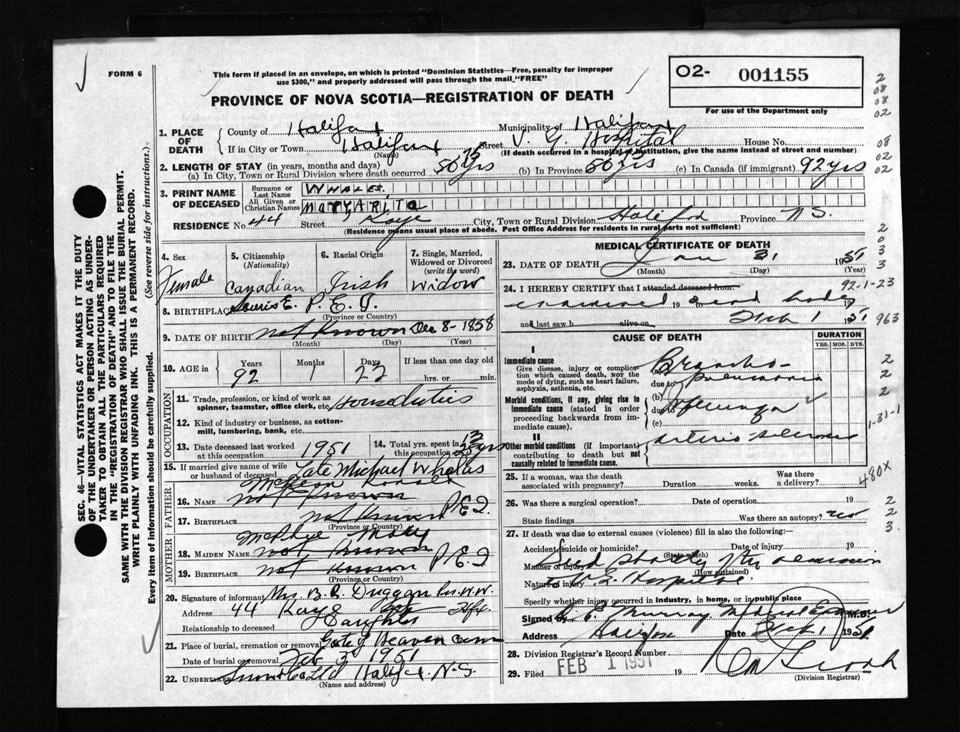 FORM 6
This form if placed in an envelope, on which is printed "Dominion Statistics—Free, penalty for improper
use $300," and properly addressed will pass through the mail "FREE"
O2- 001155
For use of the Department only
PROVINCE OF NOVA SCOTIA—REGISTRATION OF DEATH
1. PLACE OF DEATH
County of Halifax Municipality of Halifax
If in City or Town Halifax Street V. G. Hospital House No.
(Name) (If death occurred in a hospital or institution, give the name instead of street and number)
2. LENGTH OF STAY (in years, months and days)
(a) In City, Town or Rural Division where death occurred 50 yrs (b) In Province 50 yrs (c) In Canada (if immigrant) 92 yrs
3. PRINT NAME OF DECEASED
Surname or Last Name WHALES
All Given or Christian Names Margarita
RESIDENCE No. 44 Street Kaye City, Town or Rural Division Halifax Province N.S.
(Residence means usual place of abode. Post Office Address for residents in rural parts not sufficient)
4. Sex Female
5. Citizenship (Nationality) Canadian
6. Racial Origin Irish
7. Single, Married, Widowed or Divorced (write the word) Widow
8. BIRTHPLACE P.E.I.
(Province or Country)
9. DATE OF BIRTH not known Dec 8 - 1858
(Month) (Day) (Year)
10. AGE in Years Months Days If less than one day old
92 1 23 hrs. or min.
OCCUPATION
11. Trade, profession, or kind of work as spinner, teamster, office clerk, etc. House Duties
12. Kind of industry or business, as cotton-mill, lumbering, bank, etc.
13. Date deceased last worked at this occupation 1951
14. Total yrs. spent in this occupation
15. If married give name of wife or husband of deceased Late Michael Whales
FATHER
16. NAME not known
17. BIRTHPLACE not known P.E.I.
(Province or Country)
MOTHER
18. MAIDEN NAME McPhee Mary not known
19. BIRTHPLACE not known P.E.I
(Province or Country)
20. Signature of informant Mrs B. B. Duggan
Address 44 Kaye Hfx
Relationship to deceased Daughter
21. Place of burial, cremation or removal Gate of Heaven Cem
Date of burial or removal Feb 3 1951
22. UNDERTAKER Snow & Co Ltd Halifax N.S.
(Name and address)
MEDICAL CERTIFICATE OF DEATH
23. DATE OF DEATH Jan 31 1951
(Month) (Day) (Year)
24. I HEREBY CERTIFY that I attended deceased from
examined 19 dead body 19
and last saw h alive on Feb 1 1951
92-1-23
963
CAUSE OF DEATH
DURATION
YRS. MOS. DYS.
I
Immediate cause
Give disease, injury or complication which caused death, NOT the mode of dying, such as heart failure, asphyxia, asthenia, etc.
(a) Broncho-pneumonia
due to
Morbid conditions, if any, giving rise to immediate cause (stated in order proceeding backwards from immediate cause).
(b) Influenza
due to
(c)
II
Other morbid conditions (if important) contributing to death but not causally related to immediate cause.
Arterio sclerosis
1-31-1
480X
25. If a woman, was the death associated with pregnancy? Duration weeks. Was there a delivery?
26. Was there a surgical operation? Date of operation 19
State findings Was there an autopsy? no
27. If death was due to external causes (violence) fill in also the following:—
Accident, suicide or homicide? Date of injury 19
(State which)
Manner of injury Died shortly after admission
Nature of injury to V. G. Hospital
Specify whether injury occurred in industry, in home, or in public place
Signed by Murray Medical Examiner M.D.
Address Halifax Date Feb 1 1951
28. Division Registrar's Record Number
29. Filed FEB 1 1951 19
(Division Registrar)
SEC. 46—VITAL STATISTICS ACT MAKES IT THE DUTY
OF THE UNDERTAKER OR PERSON ACTING AS UNDER-
TAKER TO OBTAIN ALL THE PARTICULARS REQUIRED
IN THE "REGISTRATION OF DEATH" AND TO FILE THE
SAME WITH THE DIVISION REGISTRAR WHO SHALL ISSUE THE BURIAL PERMIT.
WRITE PLAINLY WITH UNFADING INK. THIS IS A PERMANENT RECORD.
Every item of information should be carefully supplied. (See reverse side for instructions.)